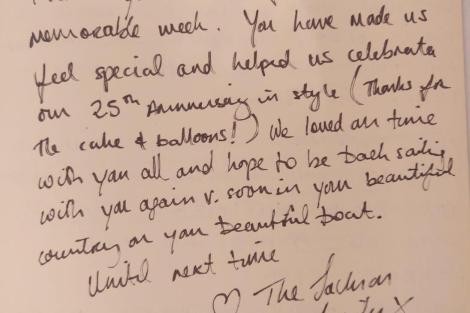 memorable week. You have made us
feel special and helped us celebrate
our 25th Anniversary in style (Thanks for
the cake & balloons!) We loved our time
with you all and hope to be back sailing
with you again v. soon in your beautiful
country on your beautiful boat.
Until next time
♡ The Jackson
x